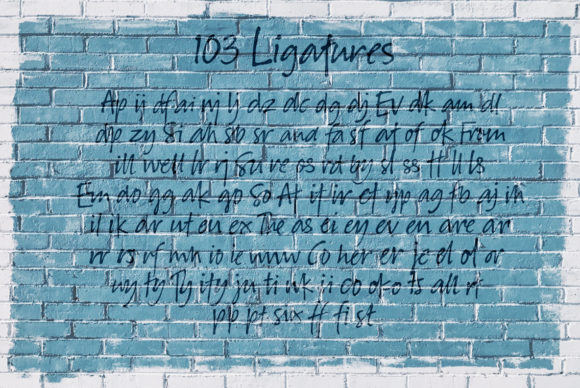 103 Ligatures
Ap ij df ai nj lj dz dc dg dj Ev dk am dl
dp zy Si ah sb sr and fa sf af of ok From
ill well lr rj Su ve os rd by sl ss tt ll ls
Em do gg ak gp So At it ir ef yp ag tb aj ih
il ik dr ut eu ex The as ei ey ev en are ar
rr rs rf mh io ie nnw Co her er je el of or
wy ty Ty ity ju ti nk ji co oko ts all rt
pb pt six ff fi st